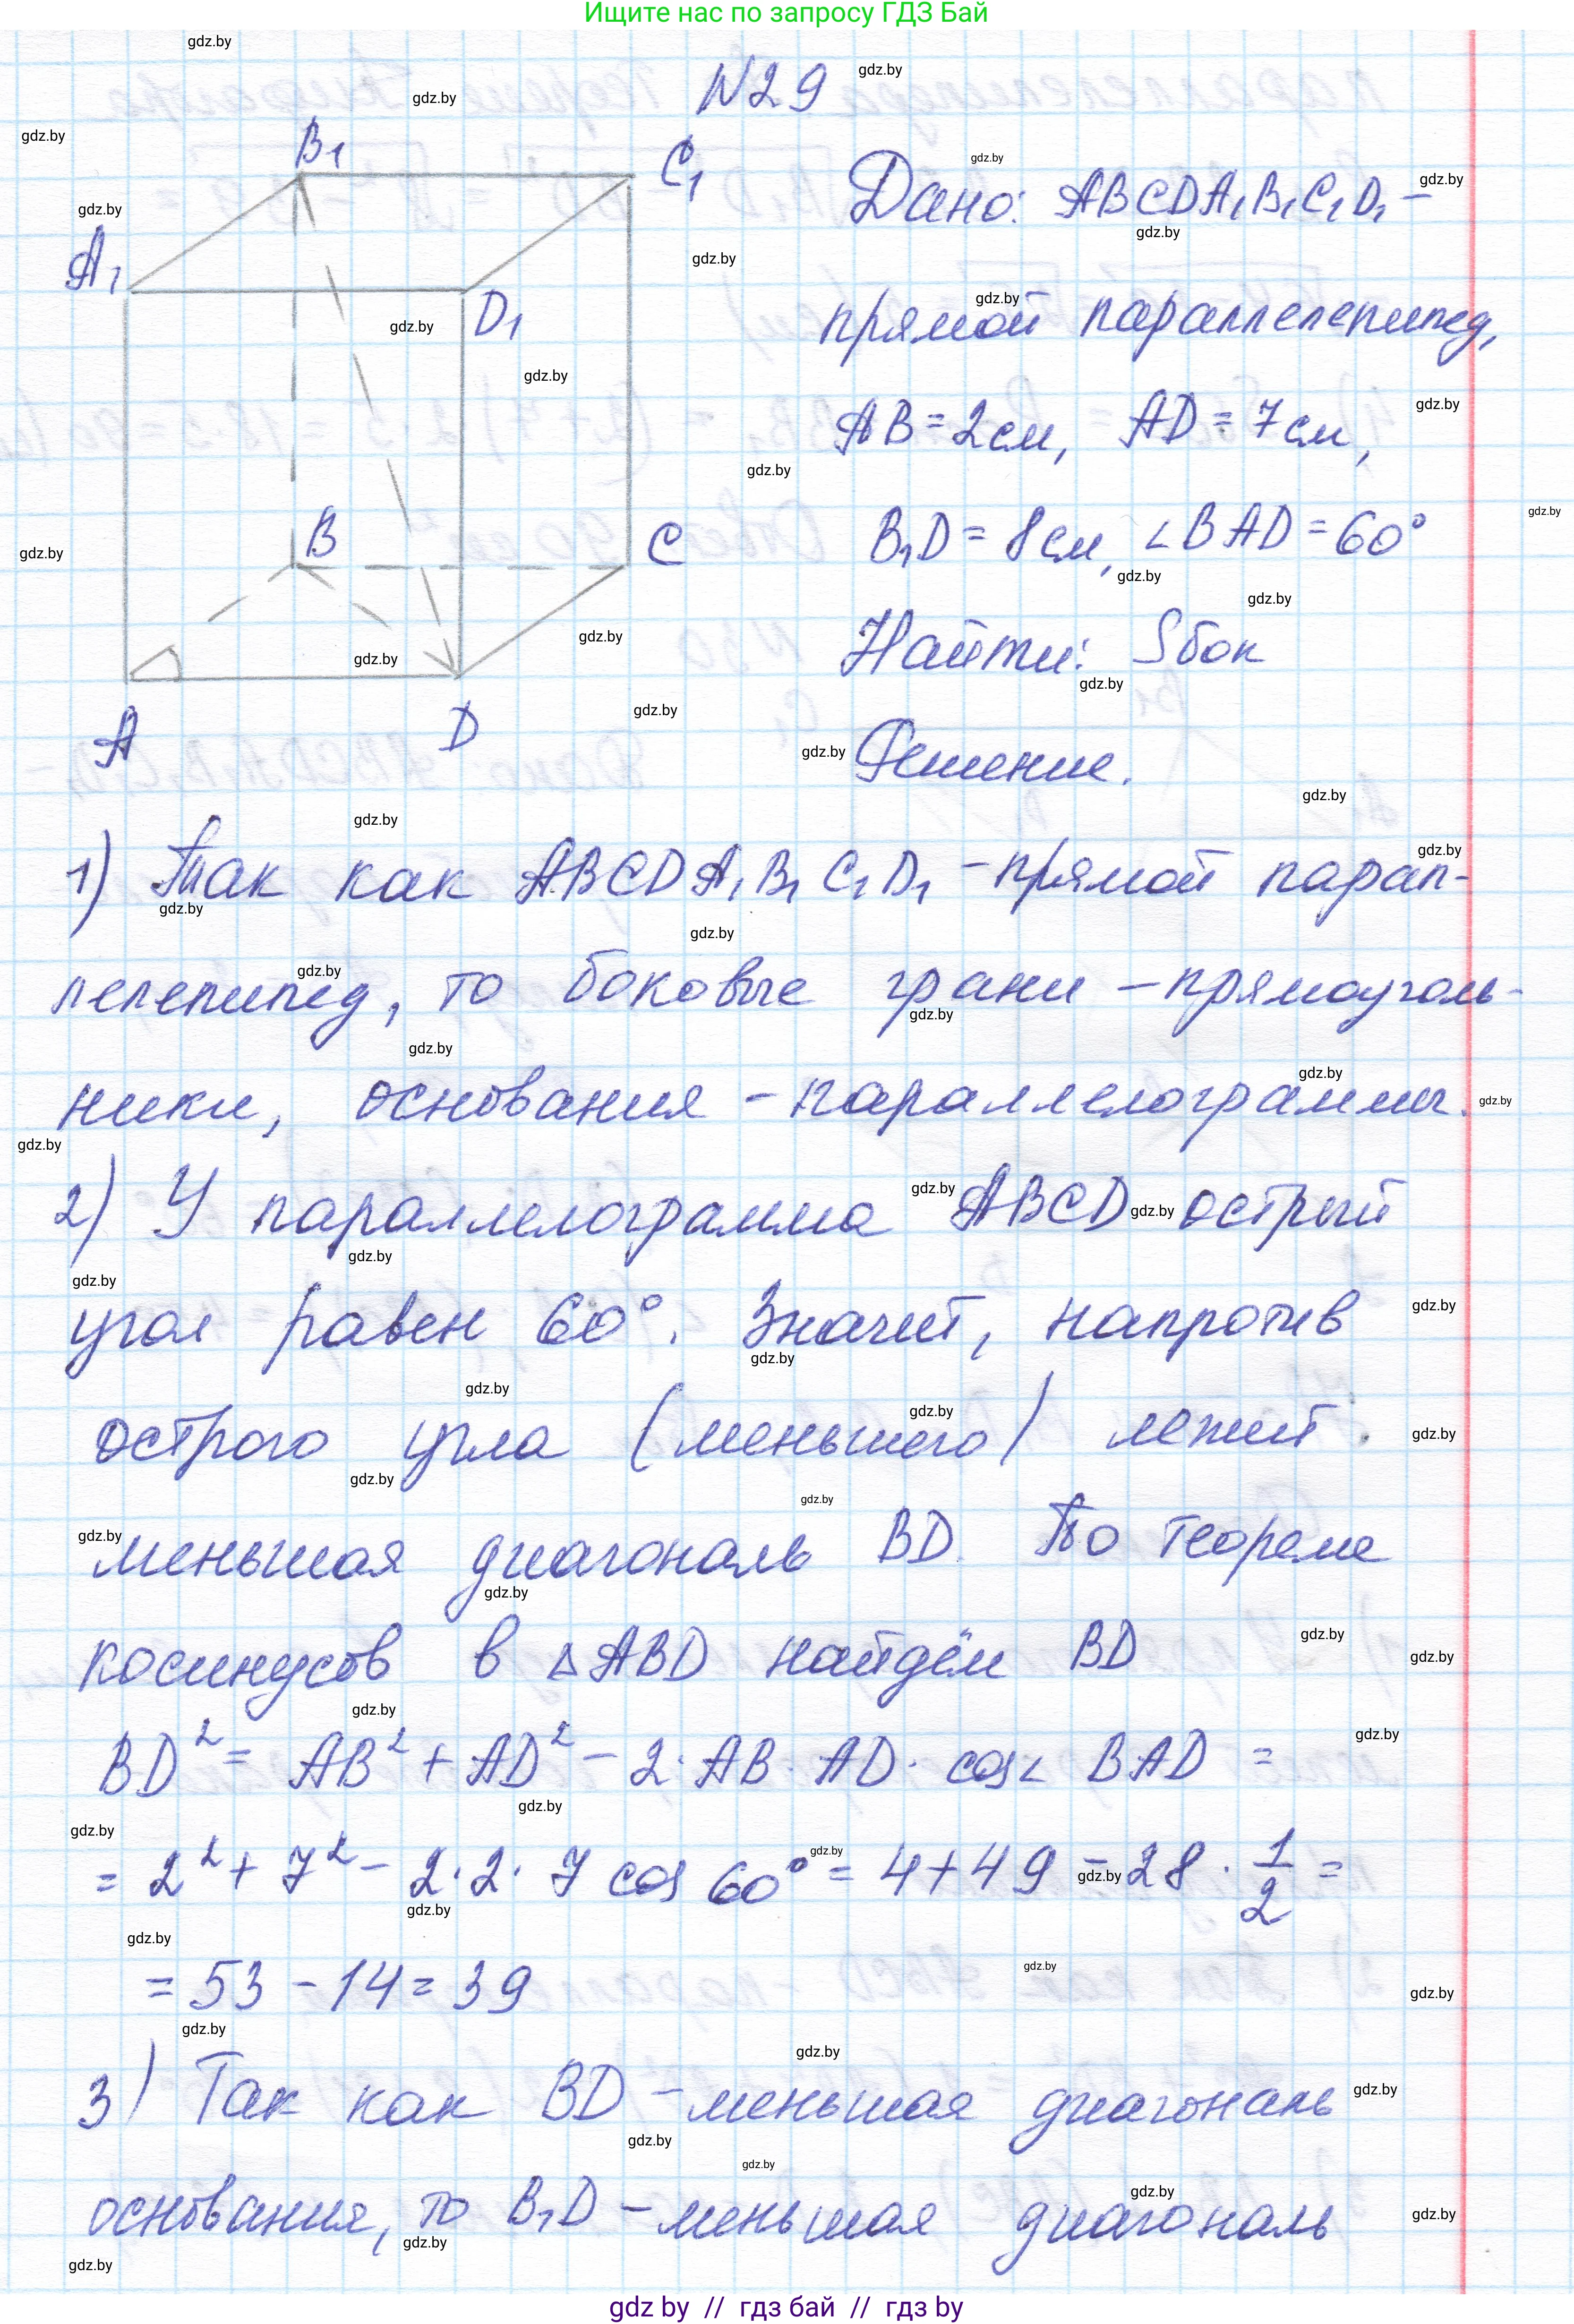 Ищите нас по запросу ГДЗ Бай
N29
B₁
C₁
A₁
D₁
B
C
A
D
Дано: ABCDA₁B₁C₁D₁ –
прямой параллелепипед,
AB = 2см, AD = 7см,
B₁D = 8см, ∠BAD = 60°
Найти: Sбок
Решение.
1) Так как ABCDA₁B₁C₁D₁ – прямой парал-
лелепипед, то боковые грани – прямоуголь-
ники, основания – параллелограммы.
2) У параллелограмма ABCD острый
угол равен 60°. Значит, напротив
острого угла (меньшего) лежит
меньшая диагональ BD. По теореме
косинусов в △ABD найдём BD
BD² = AB² + AD² – 2·AB·AD·cos∠BAD =
= 2² + 7² – 2·2·7 cos 60° = 4+49 – 28 · 1/2 =
= 53 – 14 = 39
3) Так как BD – меньшая диагональ
основания, то B₁D – меньшая диагональ
gdz by // гдз бай // гдз by